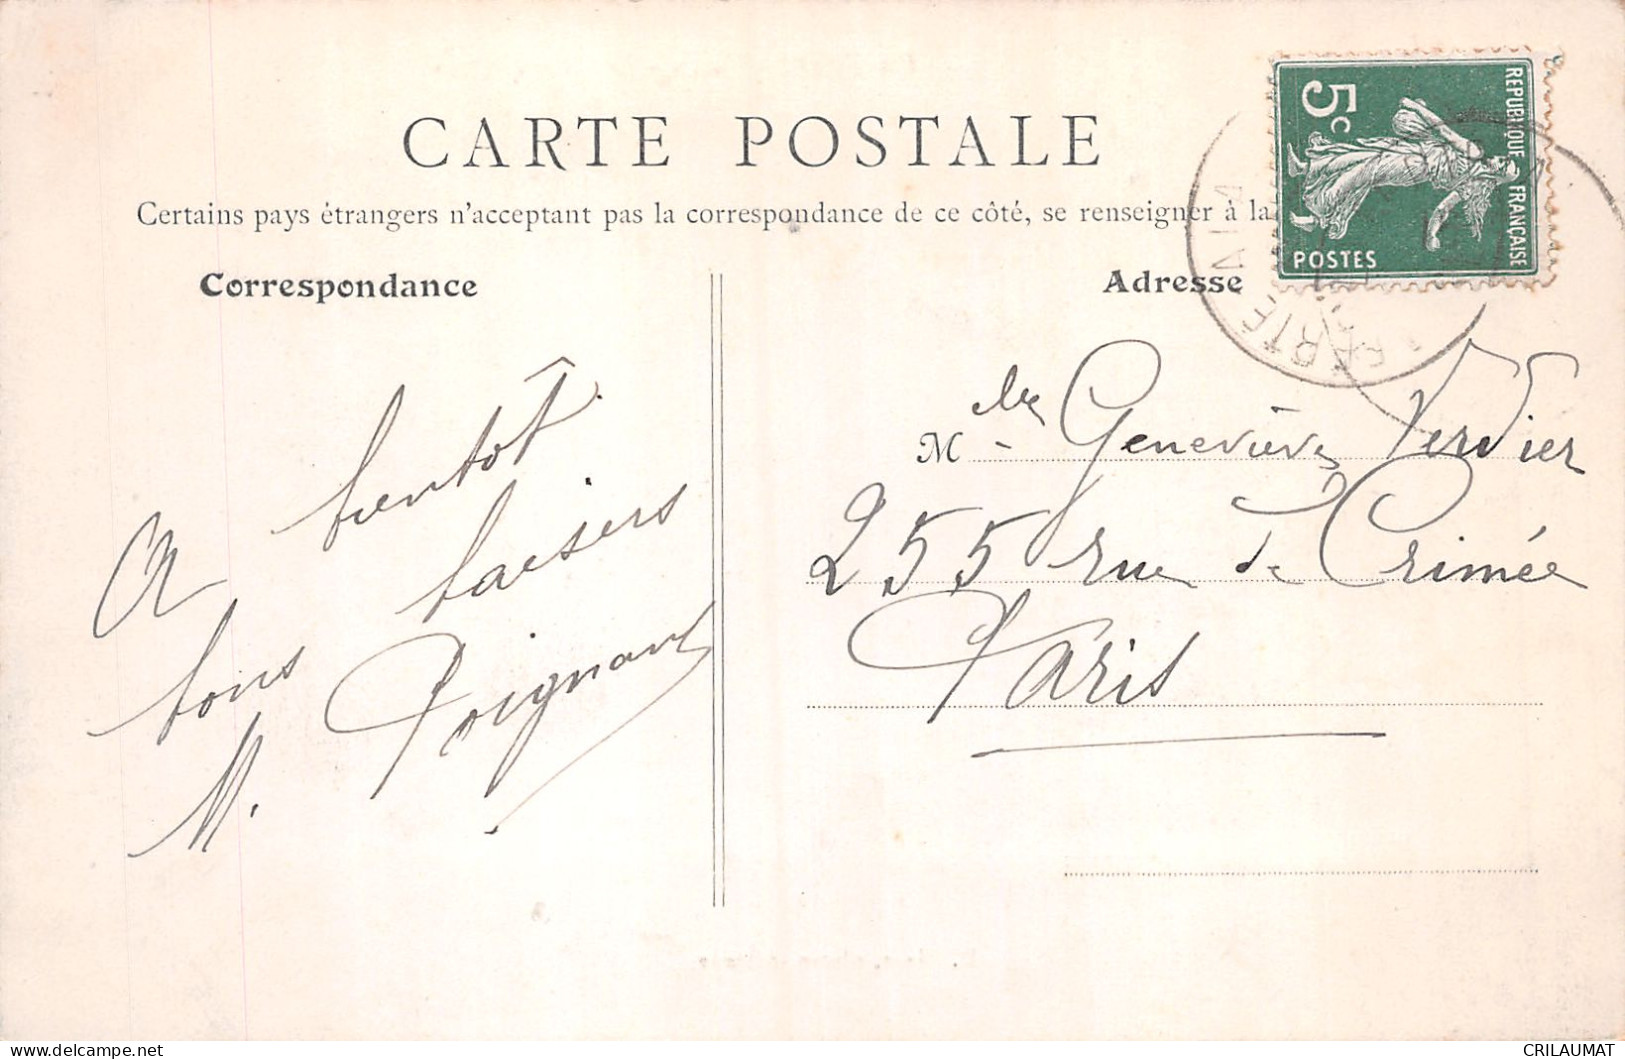 CARTE POSTALE
Certains pays étrangers n'acceptant pas la correspondance de ce côté, se renseigner à la
Correspondance
Adresse
5c
REPUBLIQUE FRANÇAISE
POSTES
A bientôt
bons baisers
M. Poignant
Mlle Geneviève Verdier
255 rue de Crimée
Paris
CRILAUMAT